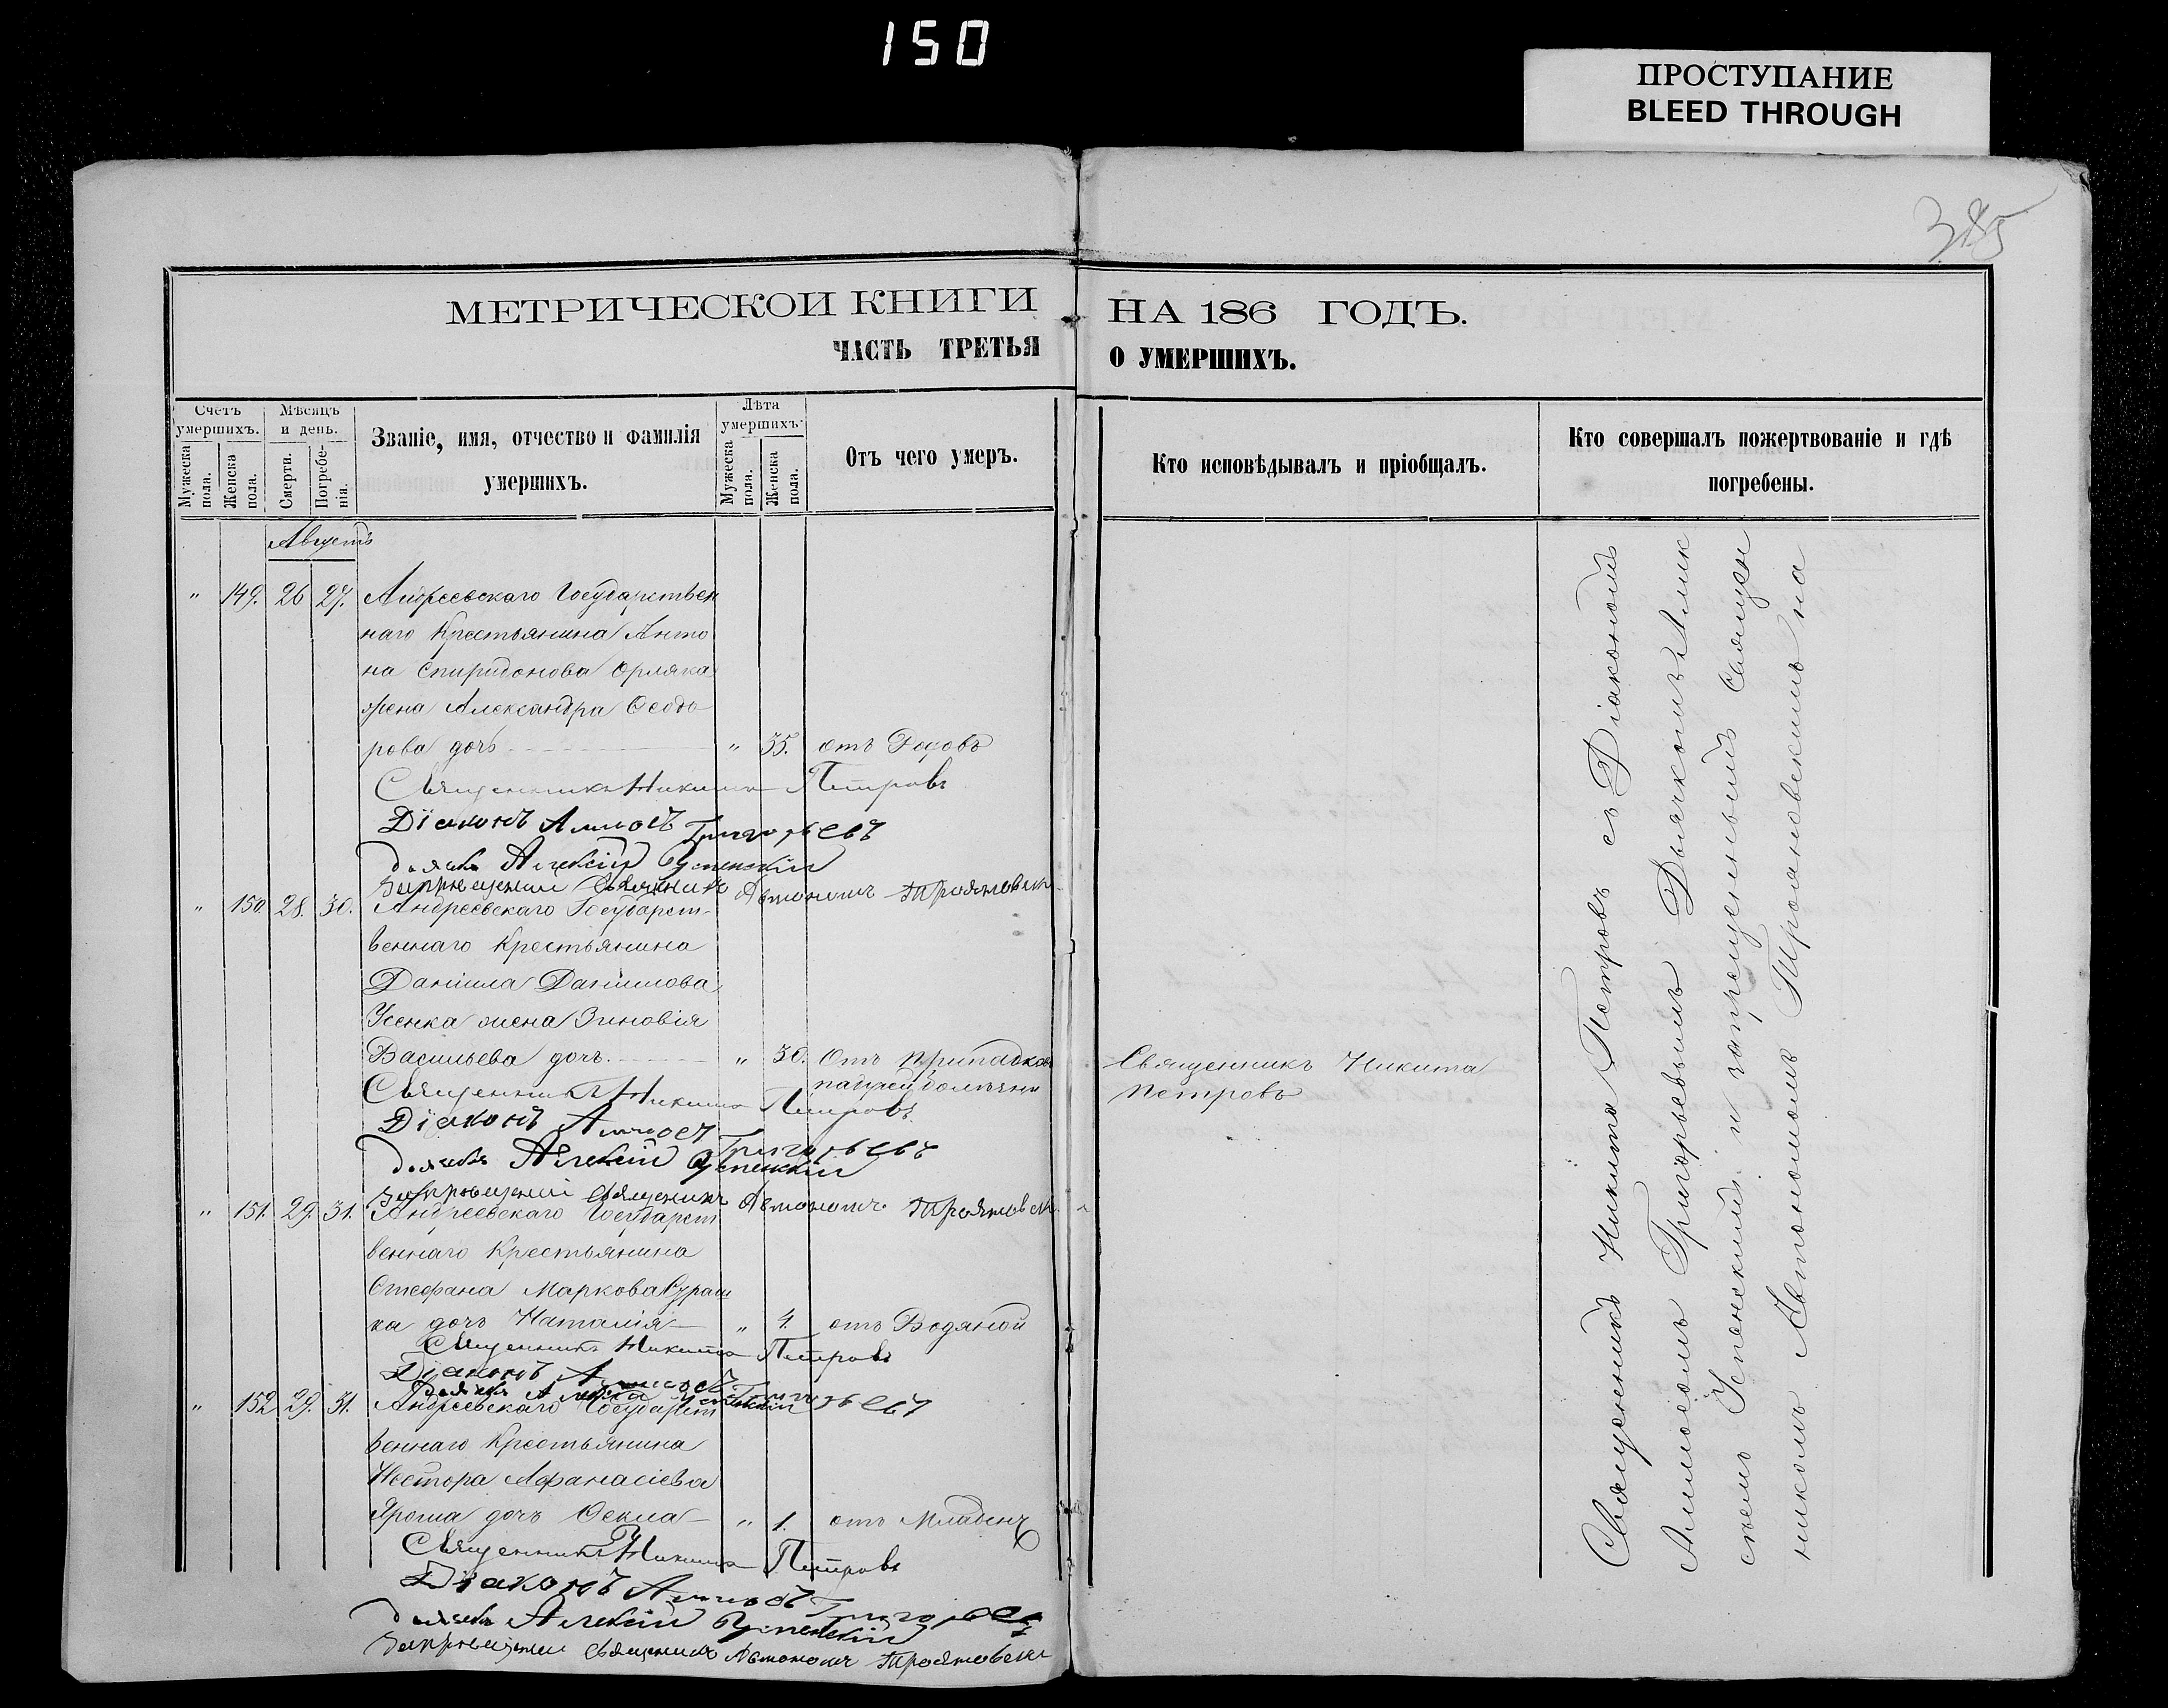 150
ПРОСТУПАНИЕ
BLEED THROUGH
385
МЕТРИЧЕСКОЙ КНИГИ НА 186 ГОДЪ.
ЧАСТЬ ТРЕТЬЯ О УМЕРШИХЪ.
Счетъ умершихъ.
Мужеска пола.
Женска пола.
Мѣсяцъ и день.
Смерти.
Погребенія.
Званіе, имя, отчество и фамилія
умершихъ.
Лѣта умершихъ.
Мужеска пола.
Женска пола.
Отъ чего умеръ.
Кто исповѣдывалъ и пріобщалъ.
Кто совершалъ пожертвованіе и гдѣ
погребены.
Августъ
" 149. 26 27. Андреевскаго Государствен
наго Крестьянина Анто
на Спиридонова Орляка
жена Александра Ѳеодо
рова дочь " 35. отъ Родовъ
Священникъ Никита Петровъ
Діаконъ Аммосъ Григорьевъ
дьячекъ Алексій Успенскій
Запрещенный Священникъ Автономъ Трояновскій
" 150. 28. 30. Андреевскаго Государст-
веннаго Крестьянина
Даніила Данилова
Усенка жена Зиновія
Васильева дочь. " 30. Отъ припадков
падучей болѣзни
Священникъ Никита
Петровъ
Священникъ Никита Петровъ
Діаконъ Аммосъ Григорьевъ
дьячекъ Алексій Успенскій
Запрещенный Священникъ Автономъ Трояновскій
" 151. 29. 31. Андреевскаго Государст
веннаго Крестьянина
Стефана Маркова
ка дочь Наталія " 4. отъ Водяной
Священникъ Никита Петровъ
Діаконъ Аммосъ Григорьевъ
Дьячекъ Алексій Успенскій
" 152 29. 31. Андреевскаго Государст
веннаго Крестьянина
Нестора Афанасіева
Яроша дочь Ѳекла " 1. отъ Младенч
Священникъ Никита Петровъ
Діаконъ Аммосъ Григорьевъ
дьячекъ Алексій Успенскій
Запрещенный Священникъ Автономъ Трояновскій
Священникъ Никита Петровъ съ Діакономъ
Аммосомъ Григорьевымъ Дьячкомъ Алик
сѣемъ Успенскимъ и запрещеннымъ Священ
никомъ Автономомъ Трояновскимъ на